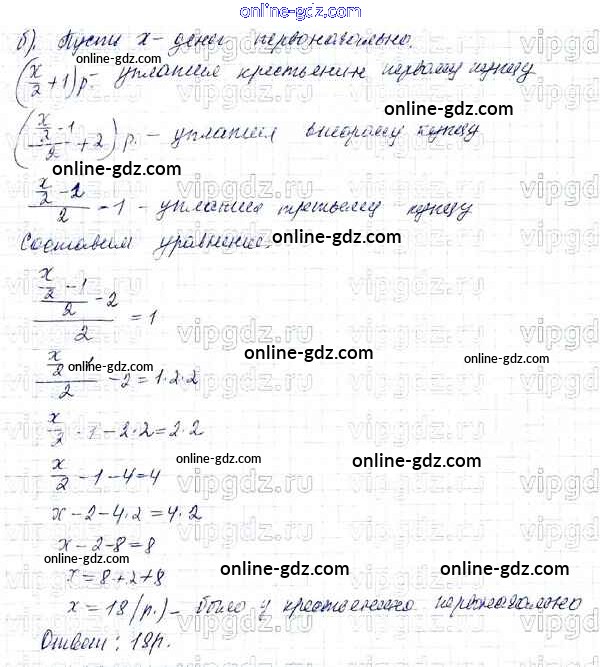 online-gdz.com
б). Пусть x - денег первоначально.
online-gdz.com
(x/2 + 1) р. - уплатил крестьянин первому купцу
((x/2 - 1)/2 + 2) р. - уплатил второму купцу
online-gdz.com
online-gdz.com
(x/2 - 2)/2 - 1 - уплатил третьему купцу
Составим уравнение:
online-gdz.com
((x/2 - 1)/2 - 2)/2 = 1
online-gdz.com
online-gdz.com
online-gdz.com
online-gdz.com
(x/2 - 1)/2 - 2 = 1·2·2
x/2 - 1 - 2·2 = 2·2
online-gdz.com
x/2 - 1 - 4 = 4
online-gdz.com
x - 2 - 4·2 = 4·2
x - 2 - 8 = 8
online-gdz.com
online-gdz.com
online-gdz.com
x = 8 + 2 + 8
x = 18 (р.) - было у крестьянина первоначально
Ответ: 18р.
online-gdz.com
online-gdz.com
vipgdz.ru